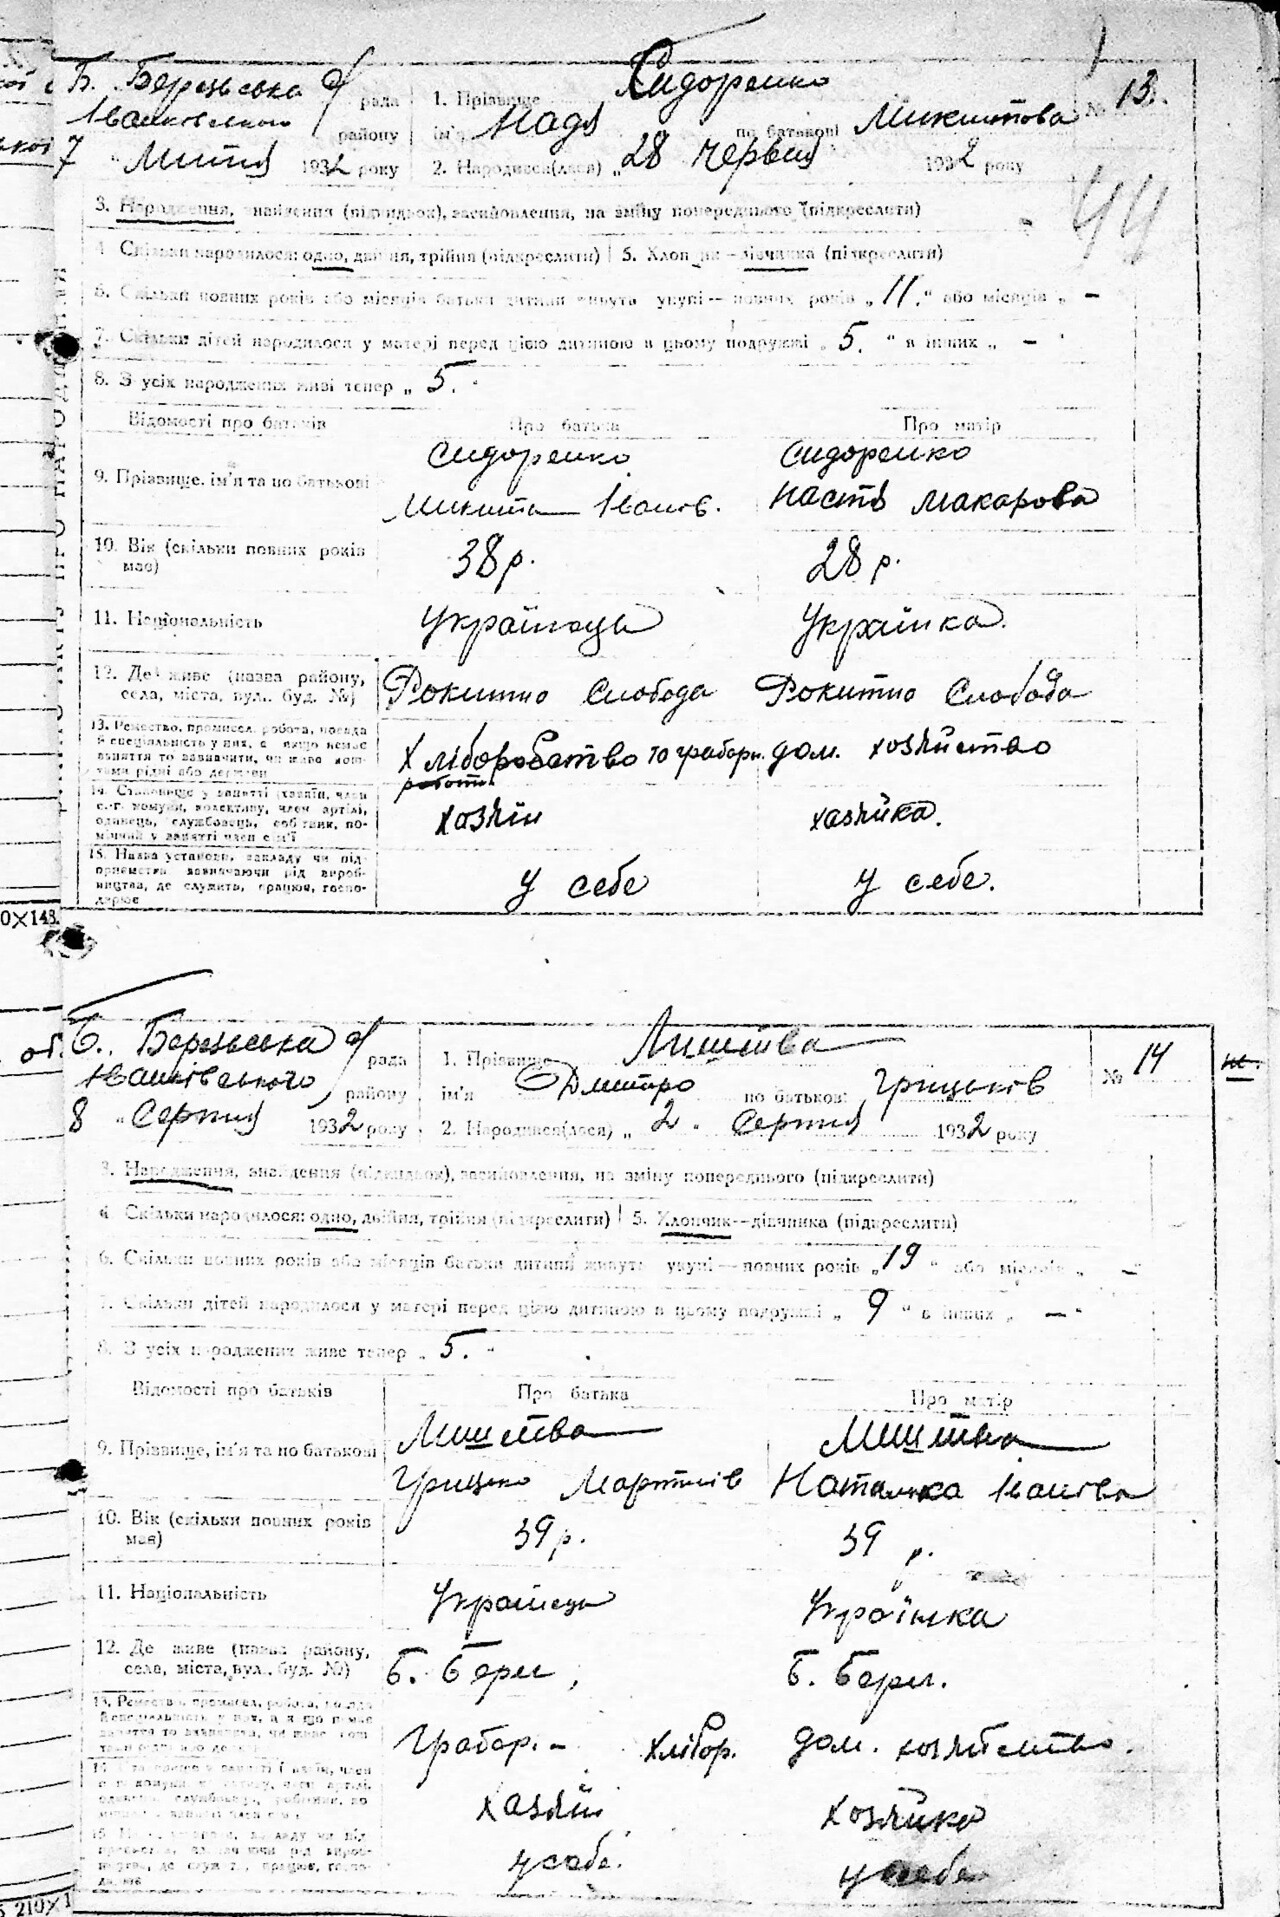 Б. Березьська с/рада
1. Прізвище Сидоренко
№ 13.
Іванковського району
ім'я Надя по батькові Микитова
7 "Липня 1932 року
2. Народився(лася) „28 Червня 1932 року
44
3. Народження, знайдення (підкидьок), засиновлення, на зміну попереднього (підкреслити)
4. Скільки народилося: одно, двійня, трійня (підкреслити) 5. Хлопчик—дівчинка (підкреслити)
6. Скільки повних років або місяців батьки дитини живуть укупі—повних років „11." або місяців „ –
7. Скільки дітей народилося у матері перед цією дитиною в цьому подружжі „5." в інших „ – "
8. З усіх народжених живі тепер „5."
Відомості про батьків Про батька Про матір
9. Прізвище, ім'я та по батькові
Сидоренко Сидоренко
Микита Іванов. Настя Макарова
10. Вік (скільки повних років має) 38 р. 28 р.
11. Національність Українець Українка.
12. Де живе (назва району, села, міста, вул., буд. №) Рокитно Слобода Рокитно Слобода
13. Ремество, промисел, робота, посада й спеціальність у них, а якщо немає заняття то зазначити, чи живе коштами рідні або держави
Хліборобство то грабарн. дом. хозяйство
работи
14. Становище у занятті (хазяїн, член с.-г. комуни, колективу, член артілі, одинець, службовець, робітник, помічний у занятті член сім'ї
хозяїн хазяйка.
15. Назва установи, закладу чи підприємства зазначаючи рід виробництва, де служить, працює, господарює
у себе у себе.
0×148.
Б. Березьська с/рада
1. Прізвище
№ 14
Іванківського району
ім'я Дмитро по батькові Грицьків
8 "Серпня 1932 року
2. Народився(лася) „2" Серпня 1932 року
3. Народження, знайдення (підкидьок), засиновлення, на зміну попереднього (підкреслити)
4. Скільки народилося: одно, двійня, трійня (підкреслити) 5. Хлопчик—дівчинка (підкреслити)
6. Скільки повних років або місяців батьки дитини живуть укупі—повних років „19" або місяців „ –
7. Скільки дітей народилося у матері перед цією дитиною в цьому подружжі „9" в інших „ – "
8. З усіх народжених живе тепер „5."
Відомості про батьків Про батька Про матір
9. Прізвище, ім'я та по батькові
Грицько Мартинів Наталка Іванова
10. Вік (скільки повних років має) 39 р. 39 р.
11. Національність Українець Українка
12. Де живе (назва району, села, міста, вул., буд. №) Б. Берег, Б. Берег.
13. Ремество, промисел, робота, посада й спеціальність у них, а якщо немає заняття то зазначити, чи живе коштами рідні або держави
Грабар. – хлібор. дом. хозяйство.
14. Становище у занятті (хазяїн, член
хазяїн хозяйка
15.
у себе. у себе